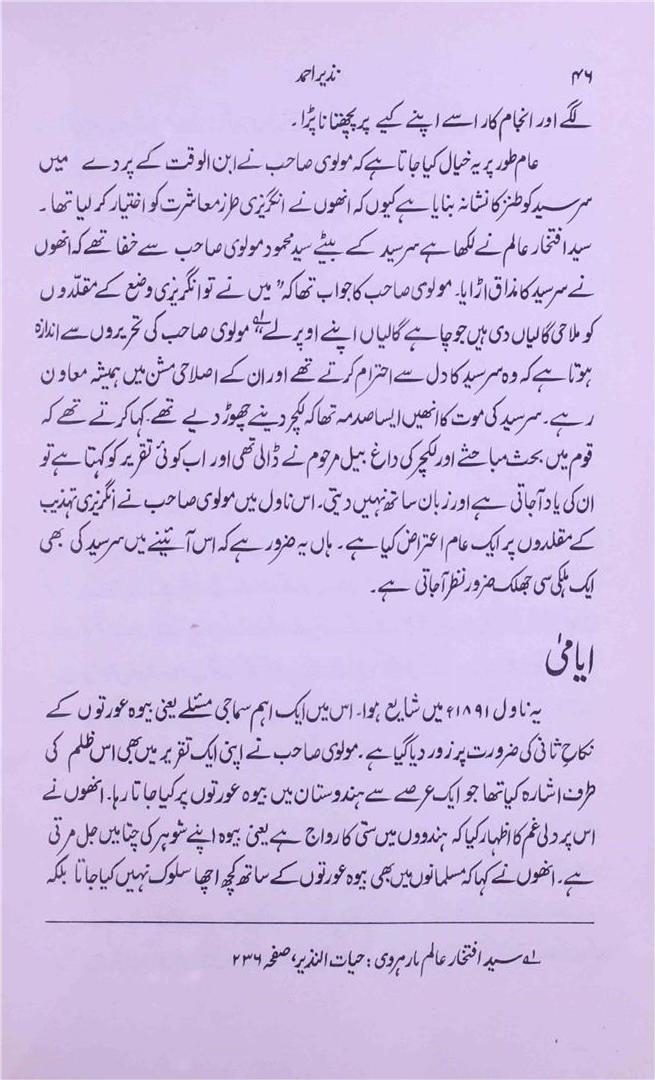 ۴۶
نذیر احمد
لگے اور انجام کار اسے اپنے کیے پر پچھتانا پڑا۔
عام طور پر یہ خیال کیا جاتا ہے کہ مولوی صاحب نے ابن الوقت کے پردے میں
سرسید کو طنز کا نشانہ بنایا ہے کیوں کہ انھوں نے انگریزی طرزِ معاشرت کو اختیار کر لیا تھا۔
سید افتخار عالم نے لکھا ہے سرسید کے بیٹے سید محمود مولوی صاحب سے خفا تھے کہ انھوں
نے سرسید کا مذاق اڑایا۔ مولوی صاحب کا جواب تھا کہ " میں نے تو انگریزی وضع کے مقلّدوں
کو ملاحی گالیاں دی ہیں جو چاہے گالیاں اپنے اوپر لے لے" ؎۱ مولوی صاحب کی تحریروں سے اندازہ
ہوتا ہے کہ وہ سرسید کا دل سے احترام کرتے تھے اور ان کے اصلاحی مشن میں ہمیشہ معاون
رہے۔ سرسید کی موت کا انھیں ایسا صدمہ تھا کہ لکچر دینے چھوڑ دیے تھے۔ کہا کرتے تھے کہ
قوم میں بحث مباحثے اور لکچر کی داغ بیل مرحوم نے ڈالی تھی اور اب کوئی تقریر کو کہتا ہے تو
ان کی یاد آجاتی ہے اور زبان ساتھ نہیں دیتی۔ اس ناول میں مولوی صاحب نے انگریزی تہذیب
کے مقلدوں پر ایک عام اعتراض کیا ہے۔ ہاں یہ ضرور ہے کہ اس آئینے میں سرسید کی بھی
ایک ہلکی سی جھلک ضرور نظر آجاتی ہے۔
ایامیٰ
یہ ناول ۱۸۹۱ء میں شایع ہوا۔ اس میں ایک اہم سماجی مسئلے یعنی بیوہ عورتوں کے
نکاحِ ثانی کی ضرورت پر زور دیا گیا ہے۔ مولوی صاحب نے اپنی ایک تقریر میں بھی اس ظلم کی
طرف اشارہ کیا تھا جو ایک عرصے سے ہندوستان میں بیوہ عورتوں پر کیا جاتا رہا۔ انھوں نے
اس پر دلی غم کا اظہار کیا کہ ہندووں میں ستی کا رواج ہے یعنی بیوہ اپنے شوہر کی چتا میں جل مرتی
ہے۔ انھوں نے کہا کہ مسلمانوں میں بھی بیوہ عورتوں کے ساتھ کچھ اچھا سلوک نہیں کیا جاتا بلکہ
؎۱ سید افتخار عالم مارہروی : حیات النذیر، صفحہ ۲۳۶